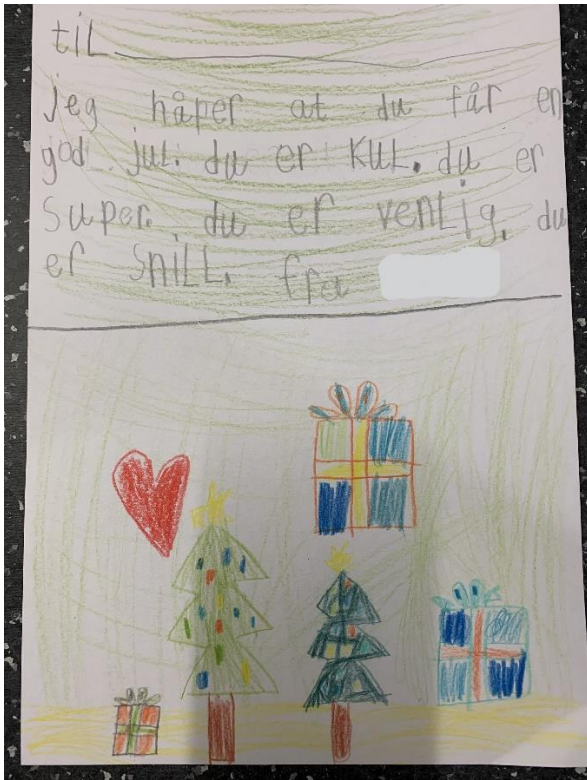 tiL
jeg håper at du får en
god jul. du er KUL. du er
Super. du er venLig. du
er SniLL. fra